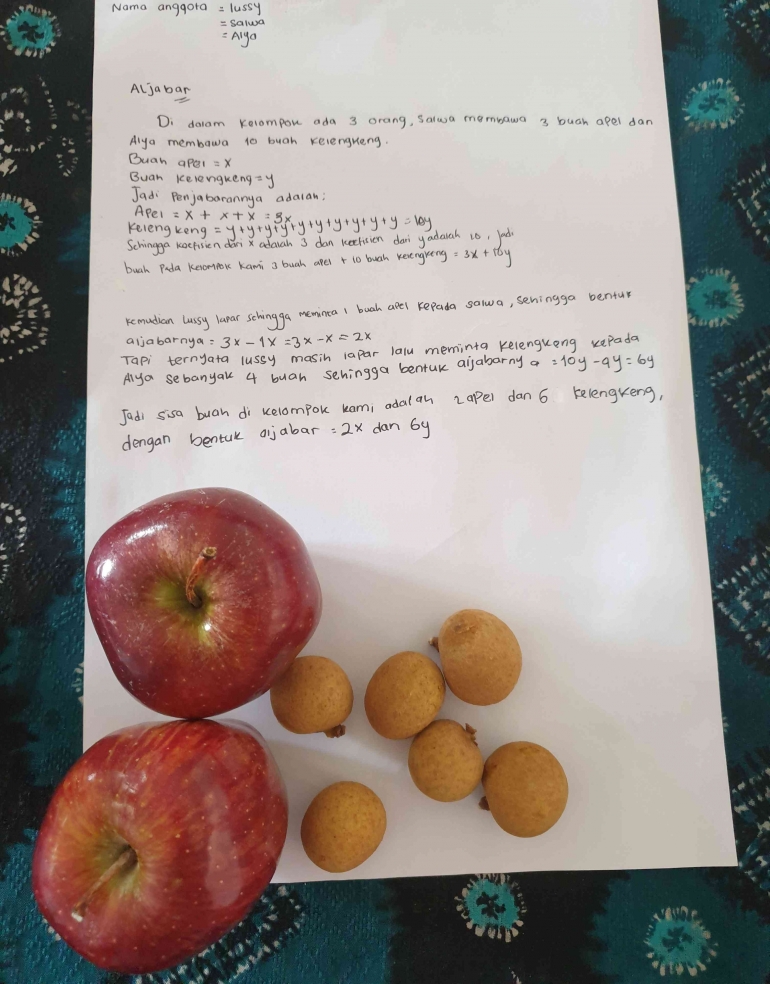 Nama anggota = lussy
= salwa
= Alya
Aljabar
Di dalam kelompok ada 3 orang, Salwa membawa 3 buah apel dan
Alya membawa 10 buah kelengkeng.
Buah apel = x
Buah kelengkeng = y
Jadi Penjabarannya adalah:
Apel = x + x + x = 3x
Kelengkeng = y+y+y+y+y+y+y+y+y+y = 10y
Sehingga koefisien dari x adalah 3 dan koefisien dari y adalah 10, jadi
buah pada kelompok kami 3 buah apel + 10 buah kelengkeng = 3x + 10y
kemudian Lussy lapar sehingga meminta 1 buah apel kepada salwa, sehingga bentuk
aljabarnya = 3x - 1x = 3x - x = 2x
Tapi ternyata lussy masih lapar lalu meminta kelengkeng kepada
Alya sebanyak 4 buah sehingga bentuk aljabarnya = 10y - 4y = 6y
Jadi sisa buah di kelompok kami adalah 2 apel dan 6 kelengkeng,
dengan bentuk aljabar = 2x dan 6y